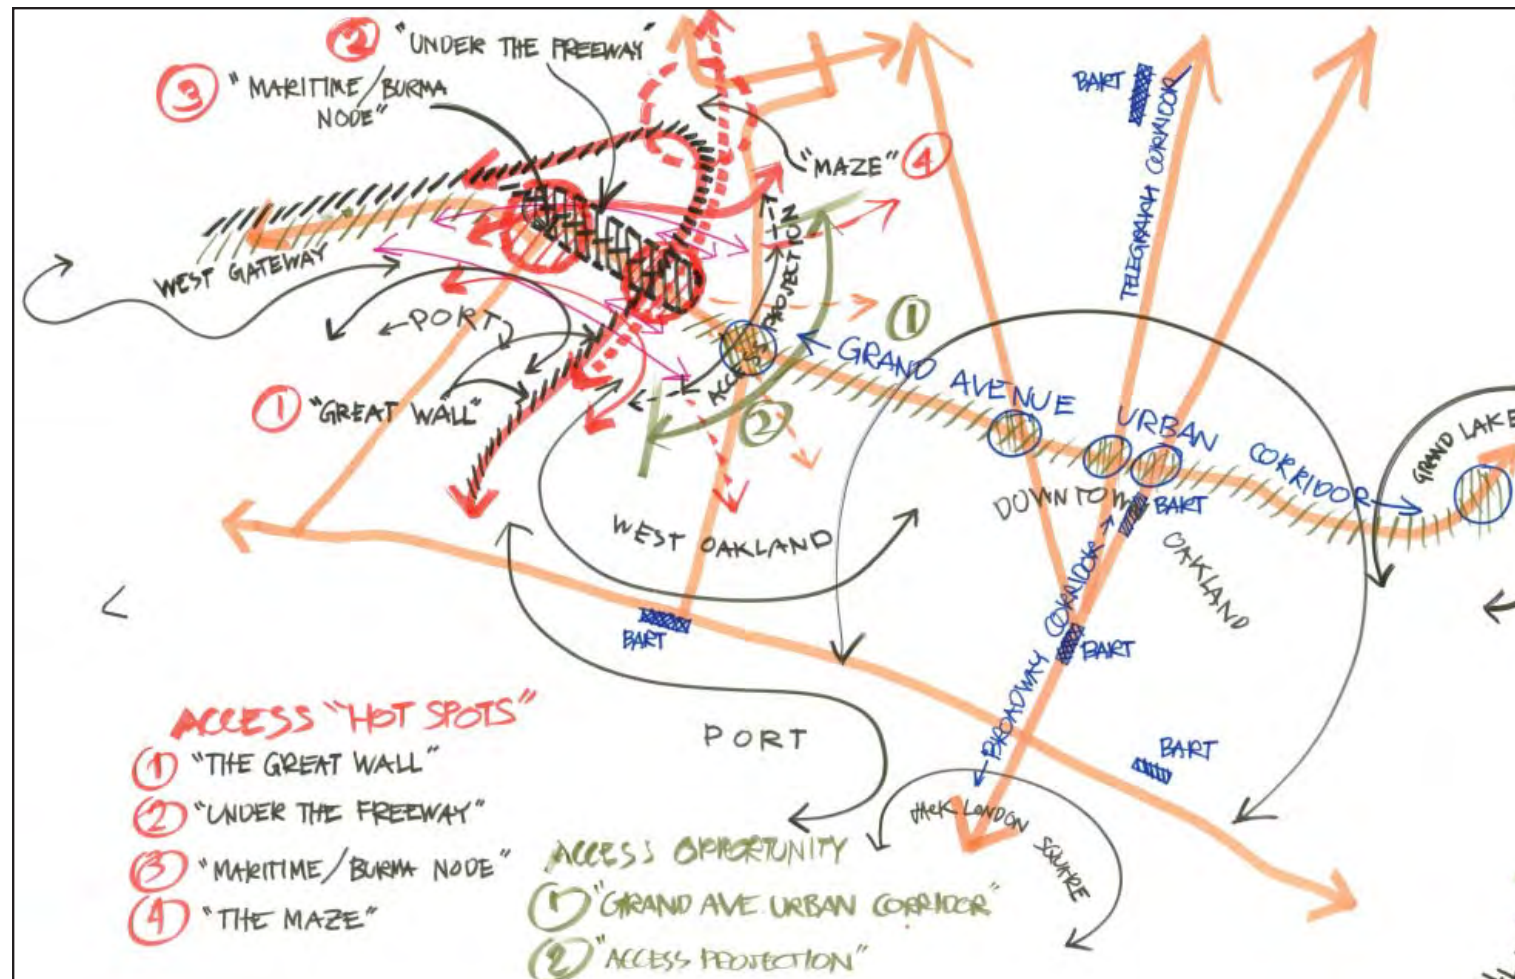 ② "UNDER THE FREEWAY"
③ "MARITIME/BURMA
NODE"
"MAZE" ④
BART
TELEGRAPH CORRIDOR
WEST GATEWAY
PORT
① "GREAT WALL"
ACCESS PROJECTION
①
②
GRAND AVENUE
URBAN CORRIDOR
GRAND LAKE
DOWNTOWN
OAKLAND
BART
WEST OAKLAND
BART
BROADWAY CORRIDOR
BART
BART
PORT
JACK LONDON SQUARE
ACCESS "HOT SPOTS"
① "THE GREAT WALL"
② "UNDER THE FREEWAY"
③ "MARITIME/BURMA NODE"
④ "THE MAZE"
ACCESS OPPORTUNITY
① "GRAND AVE URBAN CORRIDOR"
② "ACCESS PROJECTION"